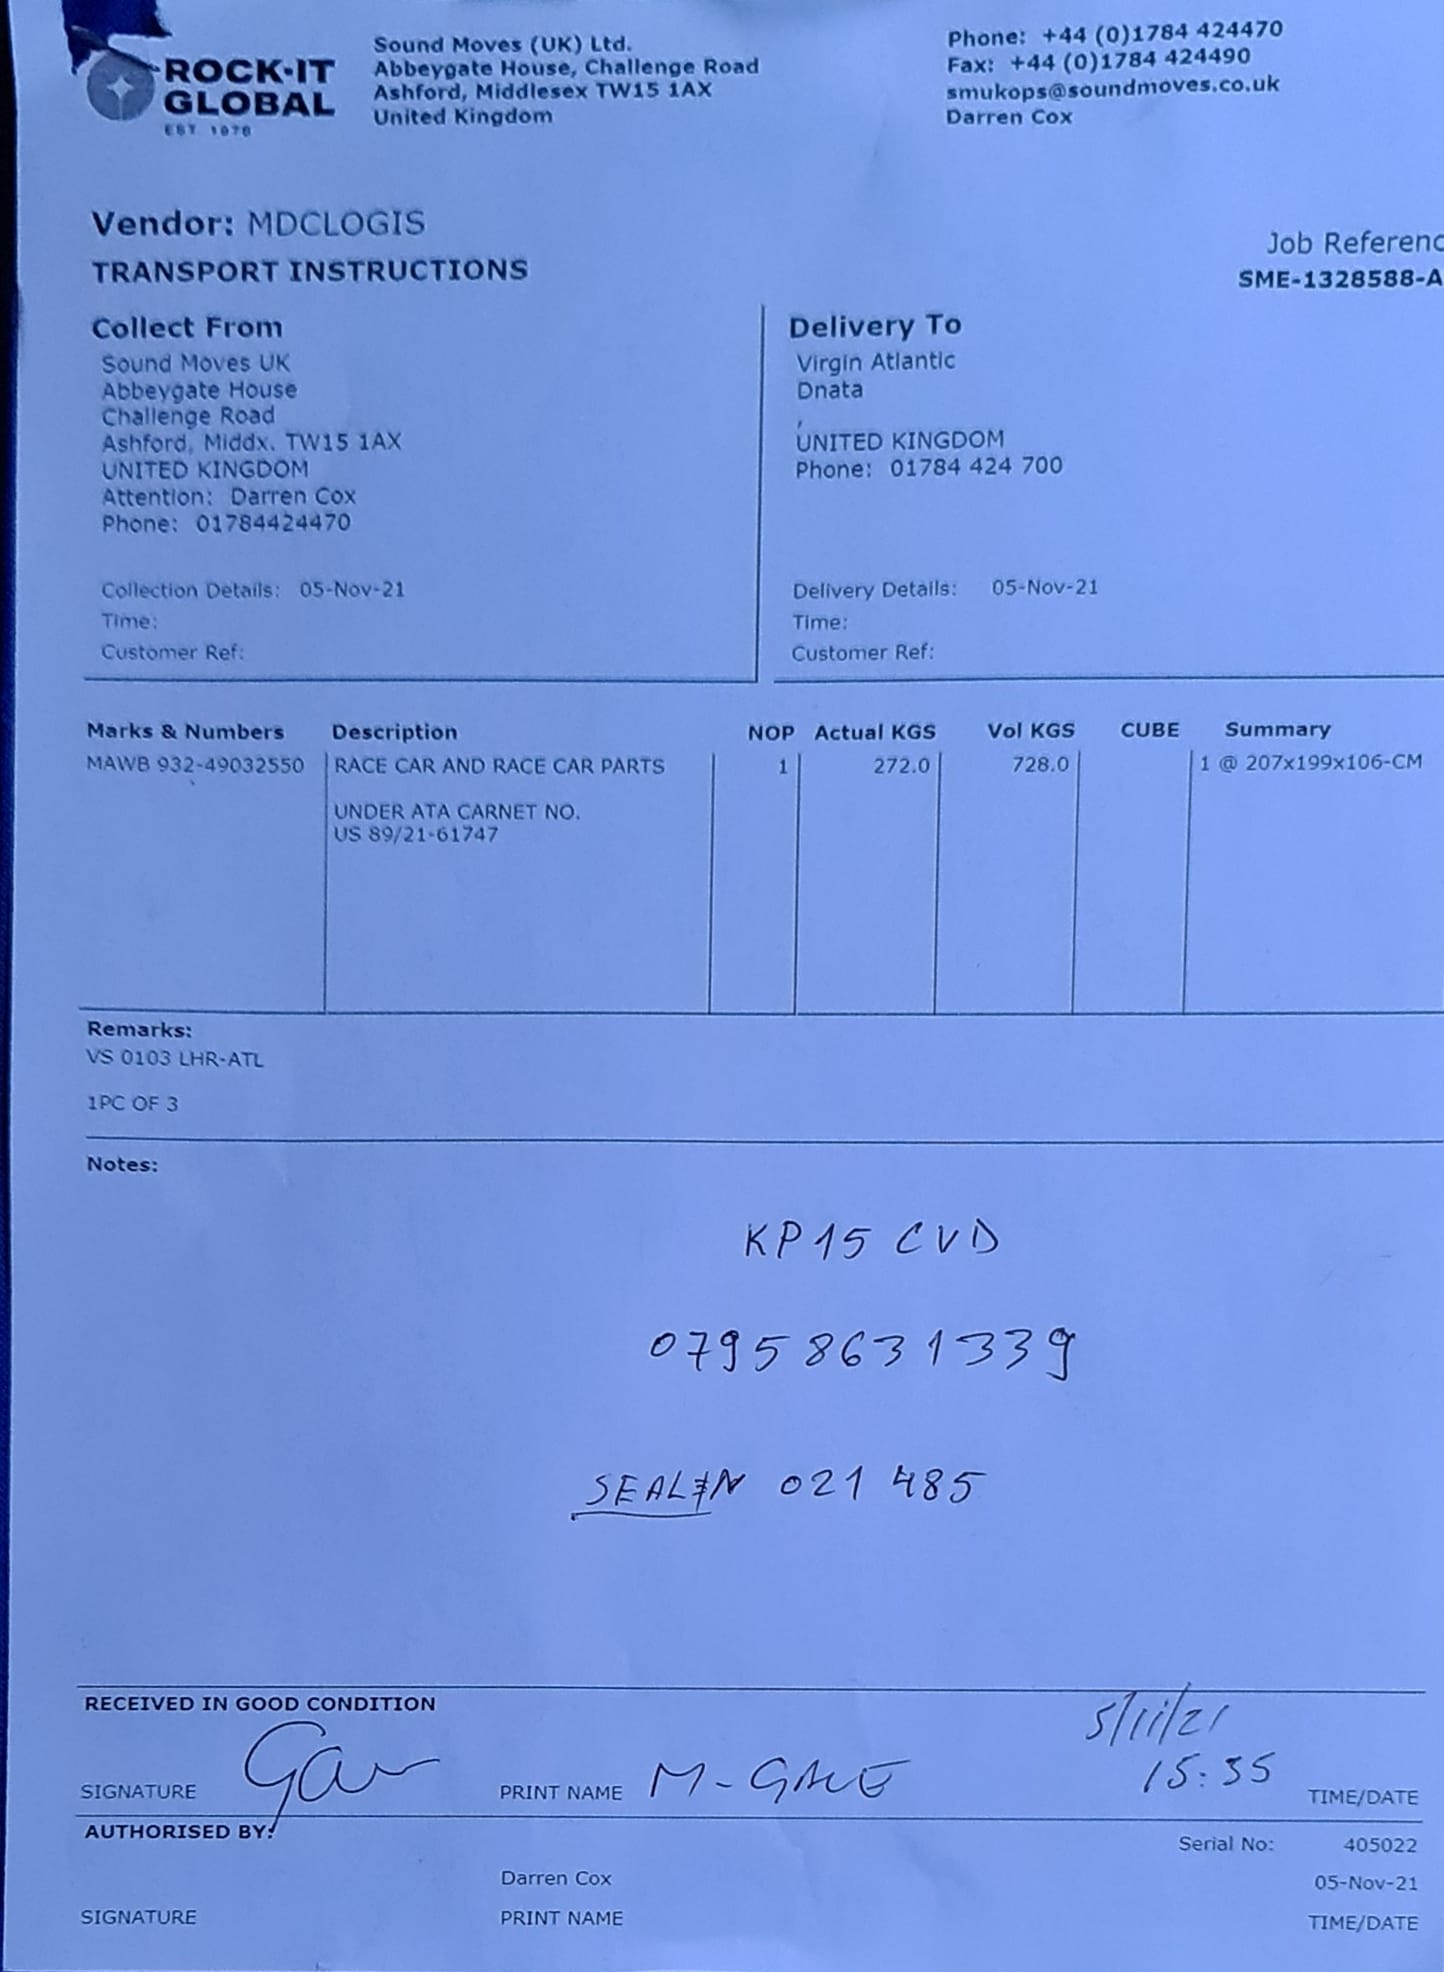 ROCK-IT
GLOBAL
EST. 1978
Sound Moves (UK) Ltd.
Abbeygate House, Challenge Road
Ashford, Middlesex TW15 1AX
United Kingdom
Phone: +44 (0)1784 424470
Fax: +44 (0)1784 424490
smukops@soundmoves.co.uk
Darren Cox
Vendor: MDCLOGIS
TRANSPORT INSTRUCTIONS
Job Referenc
SME-1328588-A
Collect From
Sound Moves UK
Abbeygate House
Challenge Road
Ashford, Middx. TW15 1AX
UNITED KINGDOM
Attention: Darren Cox
Phone: 01784424470
Collection Details: 05-Nov-21
Time:
Customer Ref:
Delivery To
Virgin Atlantic
Dnata
,
UNITED KINGDOM
Phone: 01784 424 700
Delivery Details: 05-Nov-21
Time:
Customer Ref:
Marks & Numbers Description NOP Actual KGS Vol KGS CUBE Summary
MAWB 932-49032550 RACE CAR AND RACE CAR PARTS 1 272.0 728.0 1 @ 207x199x106-CM
UNDER ATA CARNET NO.
US 89/21-61747
Remarks:
VS 0103 LHR-ATL
1PC OF 3
Notes:
KP15 CVD
07958631339
SEAL 021 485
RECEIVED IN GOOD CONDITION
5/11/21
15:35
SIGNATURE PRINT NAME M- TIME/DATE
AUTHORISED BY:
Serial No: 405022
Darren Cox 05-Nov-21
SIGNATURE PRINT NAME TIME/DATE